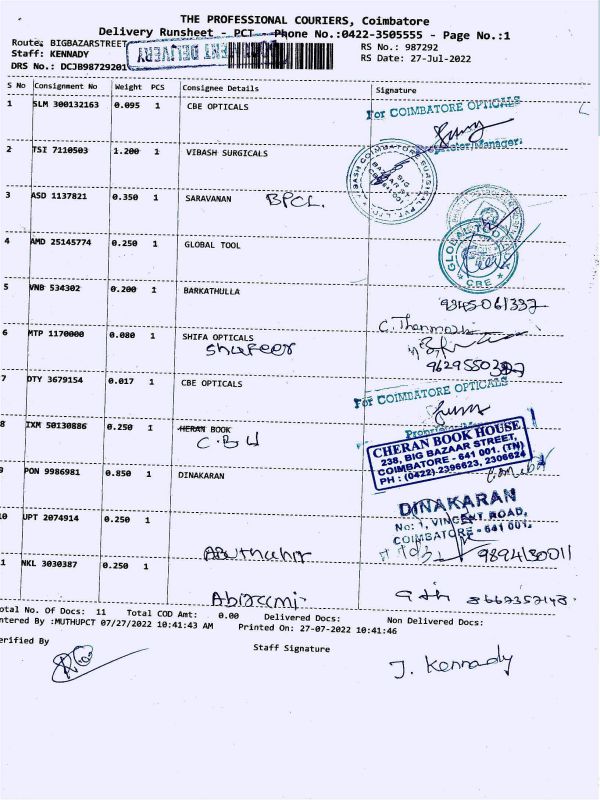 THE PROFESSIONAL COURIERS, Coimbatore
Delivery Runsheet - PCT - Phone No.:0422-3505555 - Page No.:1
Route: BIGBAZARSTREET
RS No.: 987292
Staff: KENNADY
RS Date: 27-Jul-2022
DRS No.: DCJB98729201
DELIVERY
S No Consignment No Weight PCS Consignee Details Signature
1 SLM 300132163 0.095 1 CBE OPTICALS
For COIMBATORE OPTICALS
Proprietor/Manager.
2 TSI 7110503 1.200 1 VIBASH SURGICALS
BIG
BAZAAR ST
3 ASD 1137821 0.350 1 SARAVANAN BPCL.
4 AMD 25145774 0.250 1 GLOBAL TOOL
GLOBAL TOOL
CBE
5 VNB 534302 0.200 1 BARKATHULLA
9345061337
6 MTP 1170000 0.080 1 SHIFA OPTICALS
Shafeer
7 DTY 3679154 0.017 1 CBE OPTICALS
For COIMBATORE OPTICALS
8 IXM 50130886 0.250 1 HERAN BOOK
C.B.H
CHERAN BOOK HOUSE
238, BIG BAZAAR STREET,
COIMBATORE - 641 001. (TN)
PH : (0422) 2396623, 2306624
9 PON 9986981 0.850 1 DINAKARAN
DINAKARAN
No: 1, VINCENT ROAD,
COIMBATORE - 641 001.
10 UPT 2074914 0.250 1
9894130011
11 NKL 3030387 0.250 1
Abirami
Total No. Of Docs: 11 Total COD Amt: 0.00 Delivered Docs: Non Delivered Docs:
Entered By :MUTHUPCT 07/27/2022 10:41:43 AM Printed On: 27-07-2022 10:41:46
Verified By
Staff Signature
J. Kennady